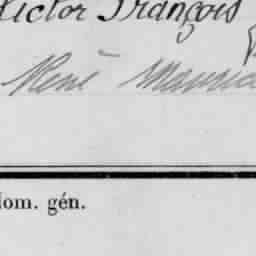 Victor François
René Maurice
Nom. gén.